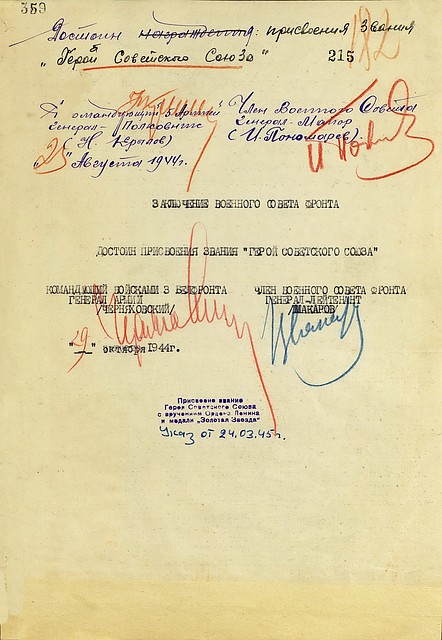 359
Достоин награждения: присвоения Звания
„Герой Советского Союза" 215 182
Командующий 5 Армией Член Военного Совета
Генерал-Полковник Генерал-Майор
(Н. Крылов) (И. Пономарев)
25 „Августа 1944г.
ЗАКЛЮЧЕНИЕ ВОЕННОГО СОВЕТА ФРОНТА
ДОСТОИН ПРИСВОЕНИЯ ЗВАНИЯ "ГЕРОЙ СОВЕТСКОГО СОЮЗА"
КОМАНДУЮЩИЙ ВОЙСКАМИ 3 БЕЛФРОНТА ЧЛЕН ВОЕННОГО СОВЕТА ФРОНТА
ГЕНЕРАЛ АРМИИ ГЕНЕРАЛ-ЛЕЙТЕНАНТ
/ЧЕРНЯХОВСКИЙ/ /МАКАРОВ/
"29" октября 1944г.
Присвоено звание
Героя Советского Союза
с вручением Ордена Ленина
и медали „Золотая Звезда"
Указ от 24.03.45г.